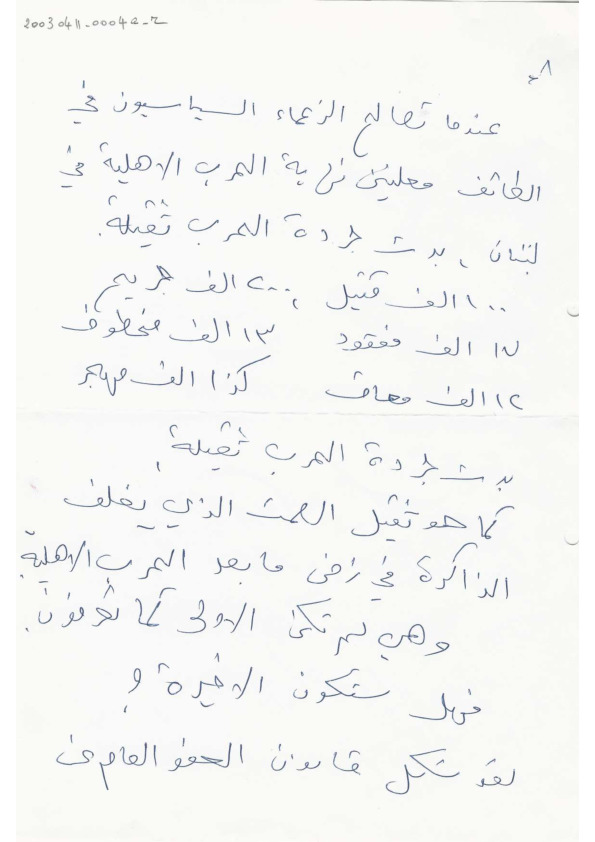 20030411-0004a-r
٨-
عندما تصالح الزعماء السياسيون في
الطائف معلنين نهاية الحرب الاهلية في
لبنان، بدت جردة الحرب ثقيلة.
١٠٠ الف قتيل ، ٢٠٠ الف جريح
١٧ الف مفقود ١٣ الف مخطوف
١٢ الف معاق كذا الف مهجر
بدت جردة الحرب ثقيلة،
كما هو ثقيل الصمت الذي يغلف
الذاكرة في زمن ما بعد الحرب الاهلية
وهي لم تكن الاولى كما تعرفون.
فهل ستكون الاخيرة؟
لقد شكل قانون العفو العام عن